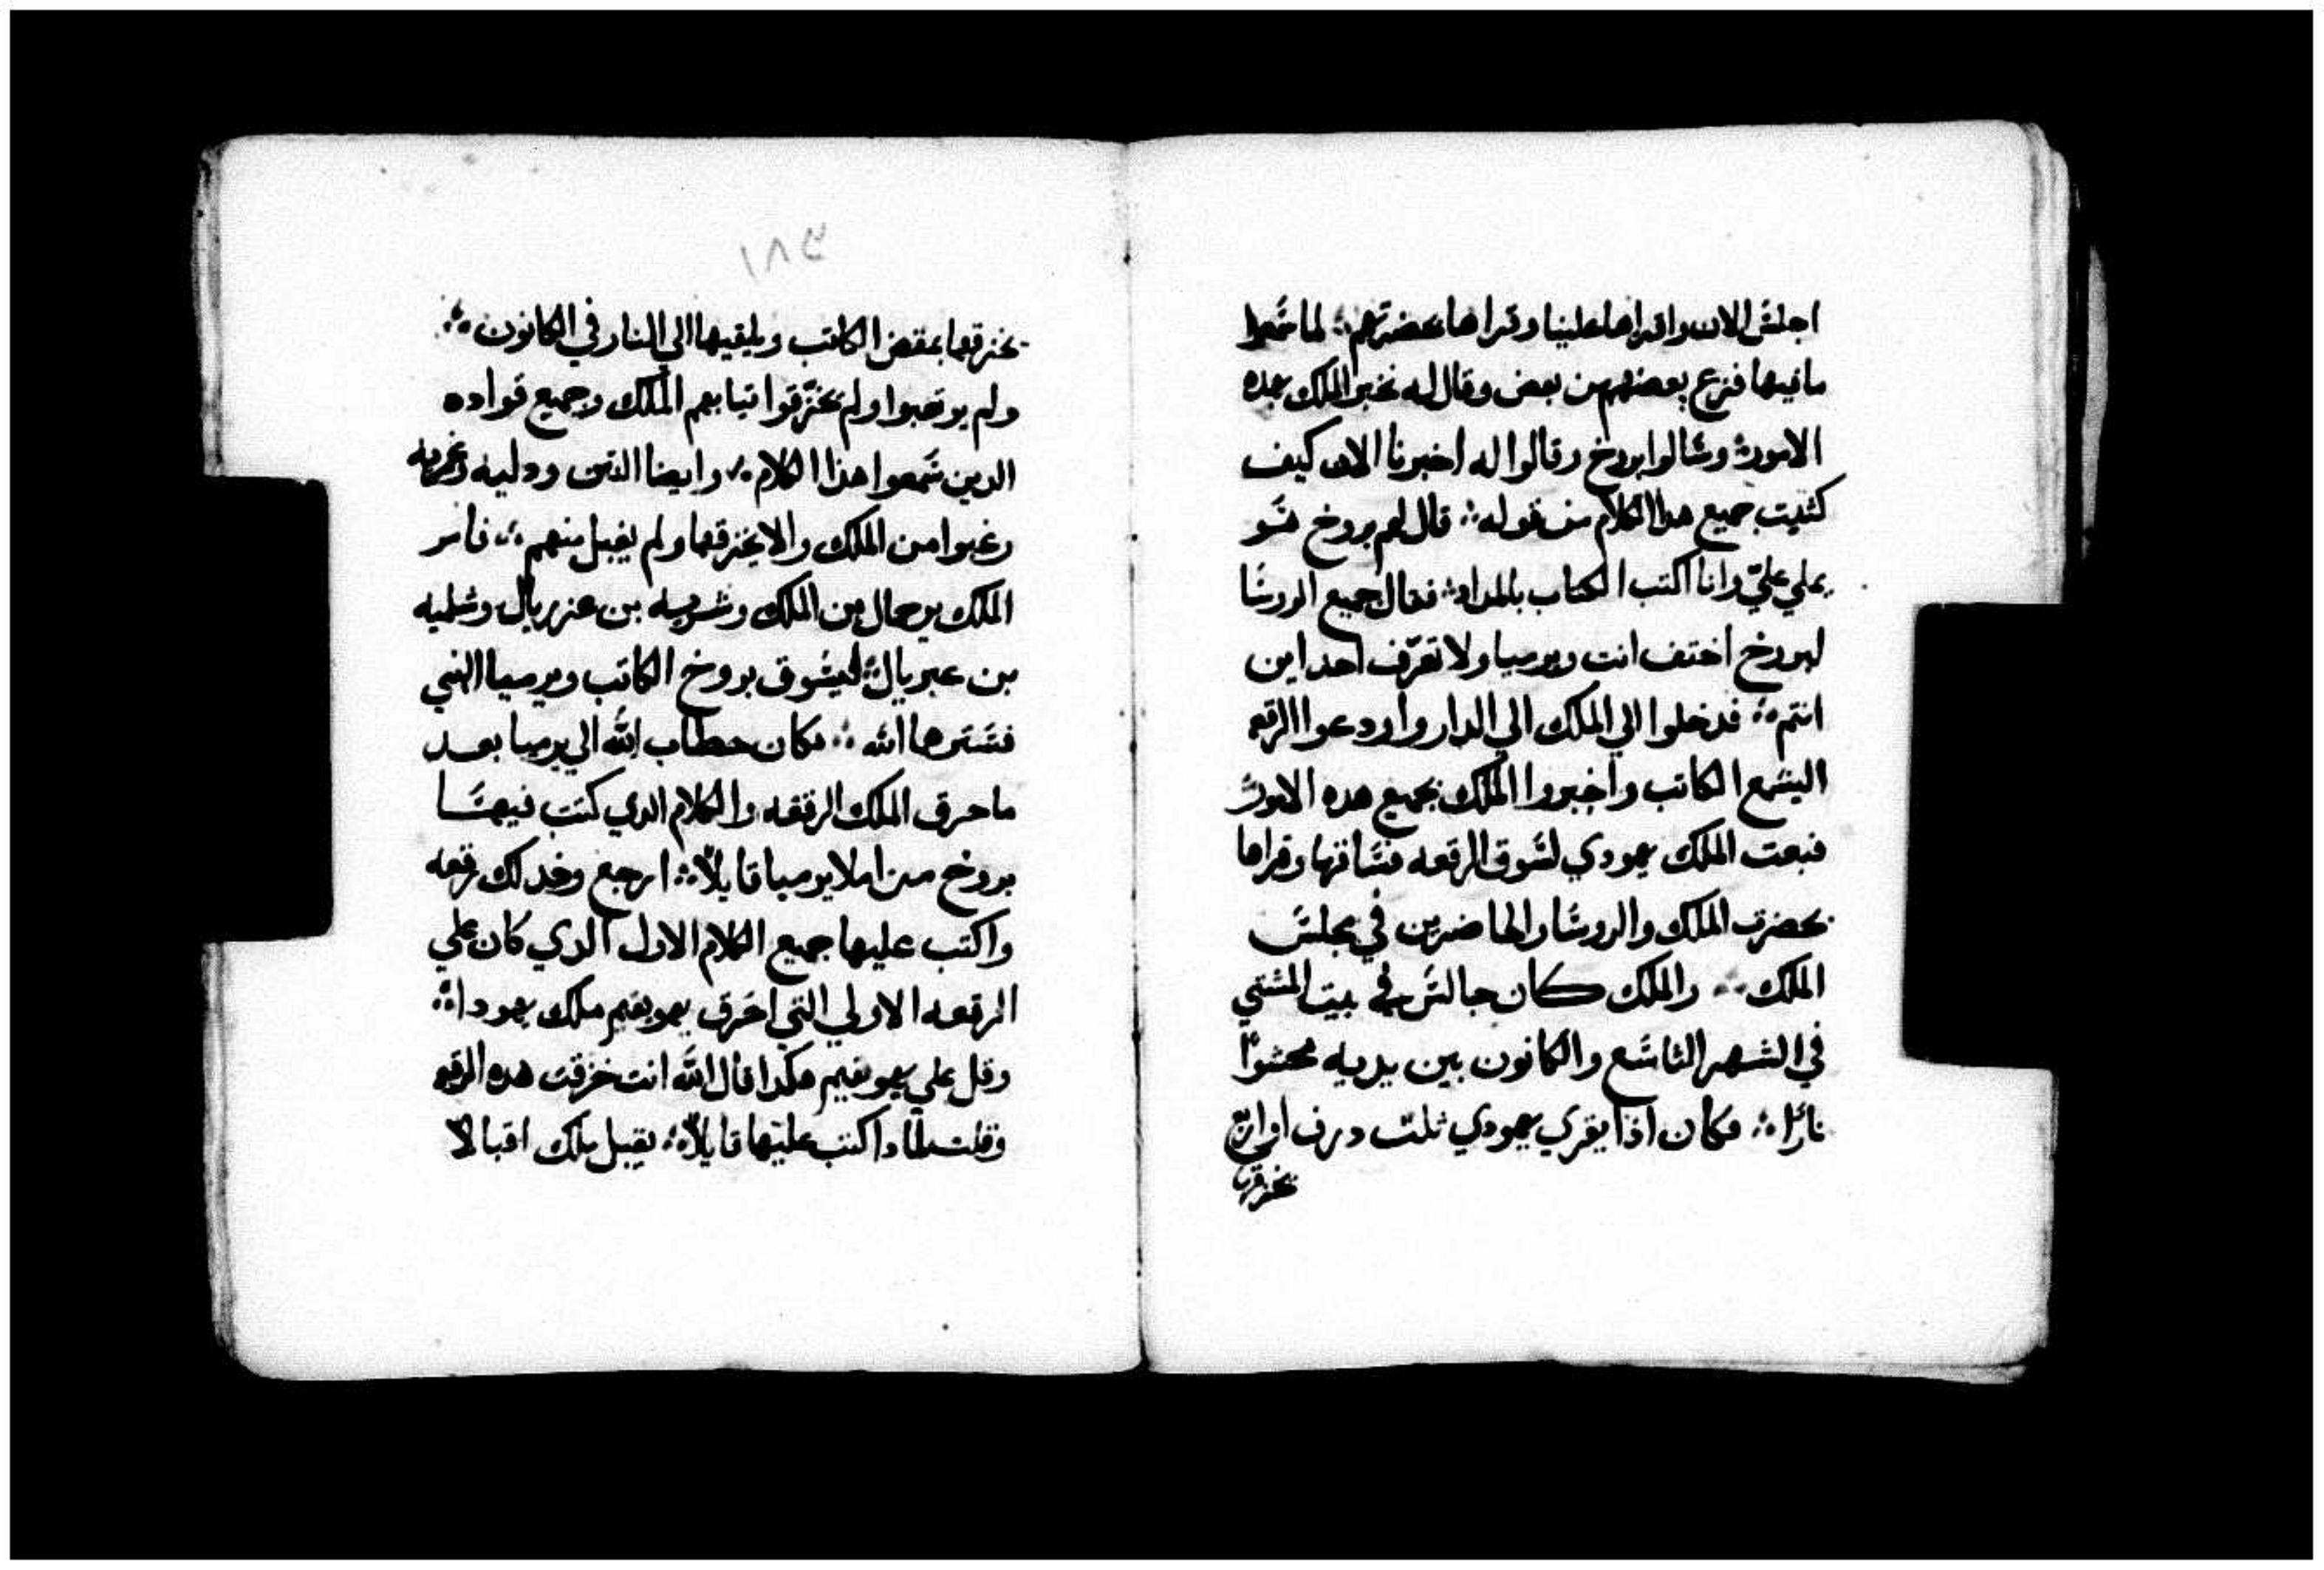 اجلس الان واقراها علينا وقراها بحضرتهم ؞ لما سمعوا
مافيها فزع بعضهم من بعض وقال له نخبر الملك بهده
الامور ؞ وسالوا بروخ وقالوا له اخبرنا الان كيف
كتبت جميع هدا الكلام من قوله ؞ قال لهم بروخ هو
يملي عليّ وانا اكتب الكتاب بالمداد ؞ فقال جميع الروسا
لبروخ اختف انت ويرميا ولا تعرّف احد اين
انتم ؞ فدخلوا الي الملك الي الدار واودعوا الرقعه
اليشمع الكاتب واخبروا الملك بجميع هده الامور
فبعت الملك يهودي لسوق الرقعه فساقها وقراها
بحضرت الملك والروسا والحاضرين في مجلس
الملك ؞ والملك كان جالس في بيت المشتي
في الشهر التاسع والكانون بين يديه محشوًا
نارًا ؞ فكان اذا يقري يهودي ثلث درف او اربع
يخزقها
١٨٤
يخزقها بمقص الكاتب ويلقيها الي النار في الكانون ؞
ولم يرتعبوا ولم يخزّقوا تيابهم الملك وجميع قواده
الدين سمعوا هذا الكلام ؞ وايضا التن ودليه وغمريه
رغبوا من الملك والا يخزقها ولم يقبل منهم ؞ فامر
الملك يرحمال بن الملك وشريه بن عزريال وشلميه
بن عبريال ؞ ليسوق بروخ الكاتب ويرميا النبي
فسترهما الله ؞ فكان خطاب الله الي يرميا بعد
ما حرق الملك الرقعه والكلام الدي كتب فيها
بروخ من املا يرميا قايلًا ؞ ارجع وخد لك رقعه
واكتب عليها جميع الكلام الاول الدي كان علي
الرقعه الاولي التي احرق يهويقيم ملك يهودا ؞
وقل علي يهويقيم هكدا قال الله انت خزقت هده الرقعه
وقلت لمادا كتبت عليها قايلًا ؞ يقبل ملك اقبالًا